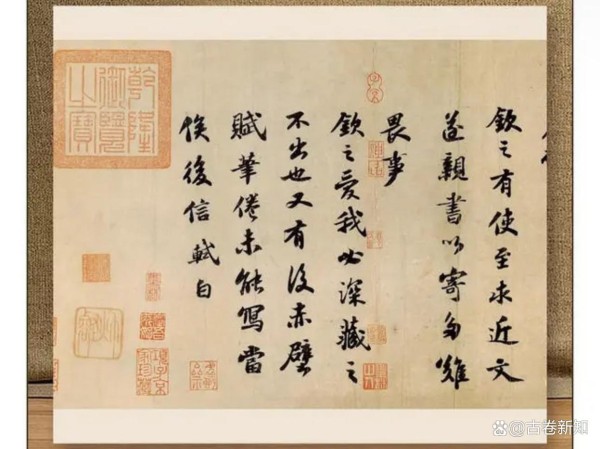 欽之有使至求近文
遂親書以寄多難
畏事
欽之愛我必深藏之
不出也又有後赤壁
賦筆倦未能寫當
俟後信軾白
乾隆御覽之寶
項子京家珍藏
古卷新知